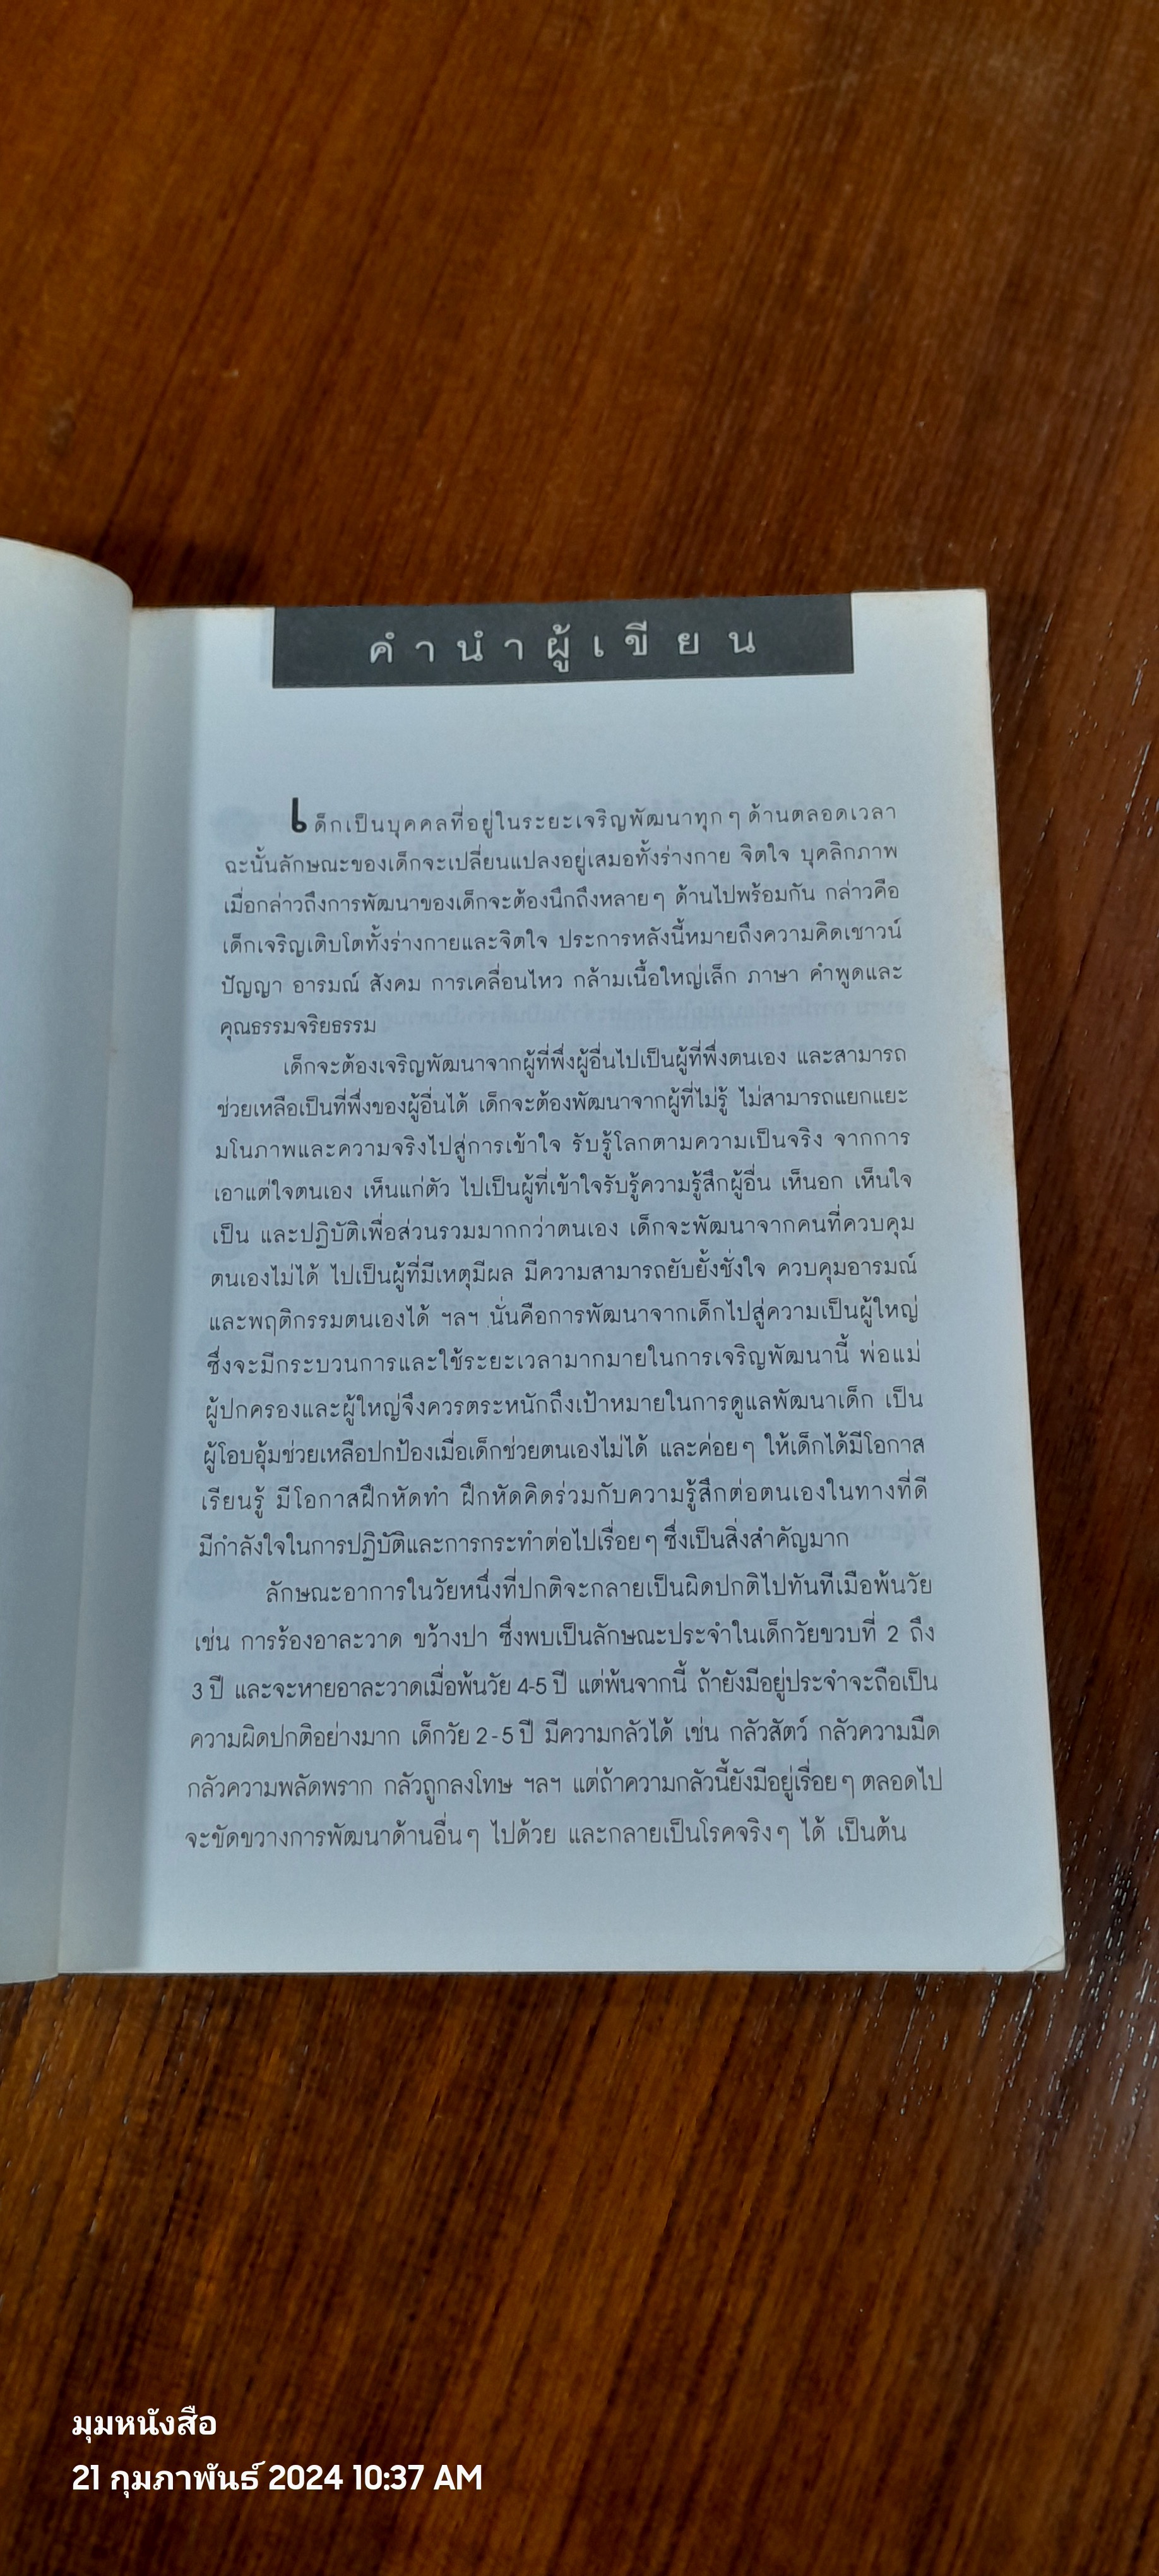 คำนำผู้เขียน
เด็กเป็นบุคคลที่อยู่ในระยะเจริญพัฒนาทุกๆ ด้านตลอดเวลา
ฉะนั้นลักษณะของเด็กจะเปลี่ยนแปลงอยู่เสมอทั้งร่างกาย จิตใจ บุคลิกภาพ
เมื่อกล่าวถึงการพัฒนาของเด็กจะต้องนึกถึงหลายๆ ด้านไปพร้อมกัน กล่าวคือ
เด็กเจริญเติบโตทั้งร่างกายและจิตใจ ประการหลังนี้หมายถึงความคิดเชาวน์
ปัญญา อารมณ์ สังคม การเคลื่อนไหว กล้ามเนื้อใหญ่เล็ก ภาษา คำพูดและ
คุณธรรมจริยธรรม
เด็กจะต้องเจริญพัฒนาจากผู้ที่พึ่งผู้อื่นไปเป็นผู้ที่พึ่งตนเอง และสามารถ
ช่วยเหลือเป็นที่พึ่งของผู้อื่นได้ เด็กจะต้องพัฒนาจากผู้ที่ไม่รู้ ไม่สามารถแยกแยะ
มโนภาพและความจริงไปสู่การเข้าใจ รับรู้โลกตามความเป็นจริง จากการ
เอาแต่ใจตนเอง เห็นแก่ตัว ไปเป็นผู้ที่เข้าใจรับรู้ความรู้สึกผู้อื่น เห็นอก เห็นใจ
เป็น และปฏิบัติเพื่อส่วนรวมมากกว่าตนเอง เด็กจะพัฒนาจากคนที่ควบคุม
ตนเองไม่ได้ ไปเป็นผู้ที่มีเหตุมีผล มีความสามารถยับยั้งชั่งใจ ควบคุมอารมณ์
และพฤติกรรมตนเองได้ ฯลฯ นั่นคือการพัฒนาจากเด็กไปสู่ความเป็นผู้ใหญ่
ซึ่งจะมีกระบวนการและใช้ระยะเวลามากมายในการเจริญพัฒนานี้ พ่อแม่
ผู้ปกครองและผู้ใหญ่จึงควรตระหนักถึงเป้าหมายในการดูแลพัฒนาเด็ก เป็น
ผู้โอบอุ้มช่วยเหลือปกป้องเมื่อเด็กช่วยตนเองไม่ได้ และค่อยๆ ให้เด็กได้มีโอกาส
เรียนรู้ มีโอกาสฝึกหัดทำ ฝึกหัดคิดร่วมกับความรู้สึกต่อตนเองในทางที่ดี
มีกำลังใจในการปฏิบัติและการกระทำต่อไปเรื่อยๆ ซึ่งเป็นสิ่งสำคัญมาก
ลักษณะอาการในวัยหนึ่งที่ปกติจะกลายเป็นผิดปกติไปทันทีเมือพ้นวัย
เช่น การร้องอาละวาด ขว้างปา ซึ่งพบเป็นลักษณะประจำในเด็กวัยขวบที่ 2 ถึง
3 ปี และจะหายอาละวาดเมื่อพ้นวัย 4-5 ปี แต่พ้นจากนี้ ถ้ายังมีอยู่ประจำจะถือเป็น
ความผิดปกติอย่างมาก เด็กวัย 2 - 5 ปี มีความกลัวได้ เช่น กลัวสัตว์ กลัวความมืด
กลัวความพลัดพราก กลัวถูกลงโทษ ฯลฯ แต่ถ้าความกลัวนี้ยังมีอยู่เรื่อยๆ ตลอดไป
จะขัดขวางการพัฒนาด้านอื่นๆ ไปด้วย และกลายเป็นโรคจริงๆ ได้ เป็นต้น
มุมหนังสือ
21 กุมภาพันธ์ 2024 10:37 AM